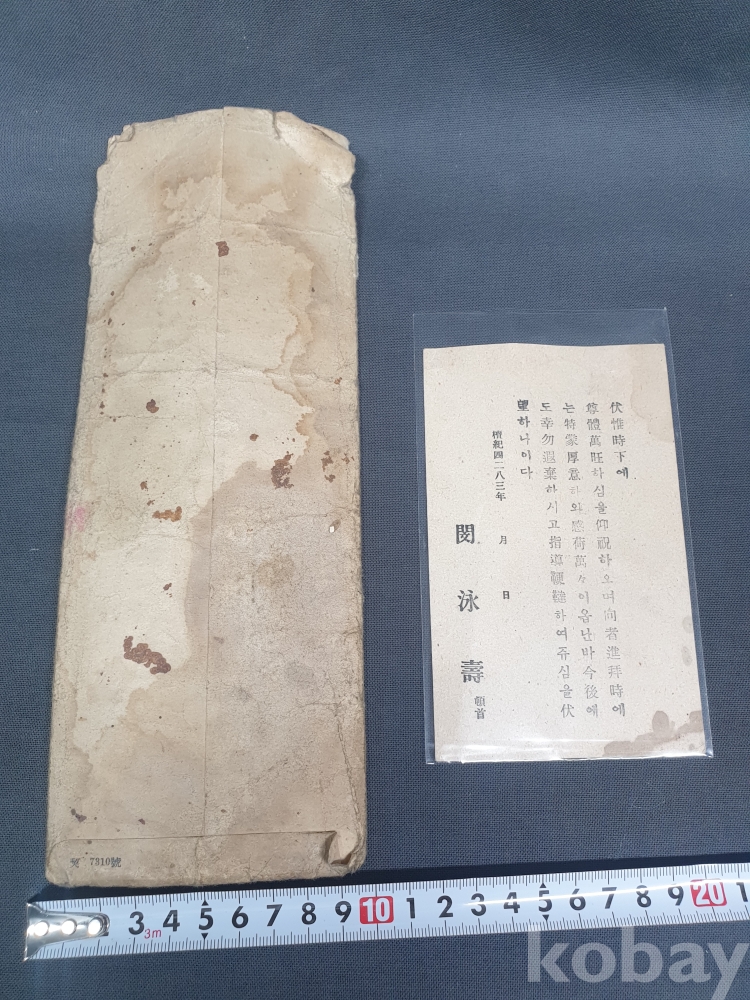 伏惟時下에
尊體萬旺하심을仰祝하오며向者進拜時에
는特蒙厚意하와感荷萬々이옵난바今後에
도幸勿遐棄하시고指導鞭韃하여쥬심을伏
望하나이다
檀紀四二八三年 月 日
閔泳壽 頓首
7310號
3 4 5 6 7 8 9 10 1 2 3 4 5 6 7 8 9 20 1
3m
kobay